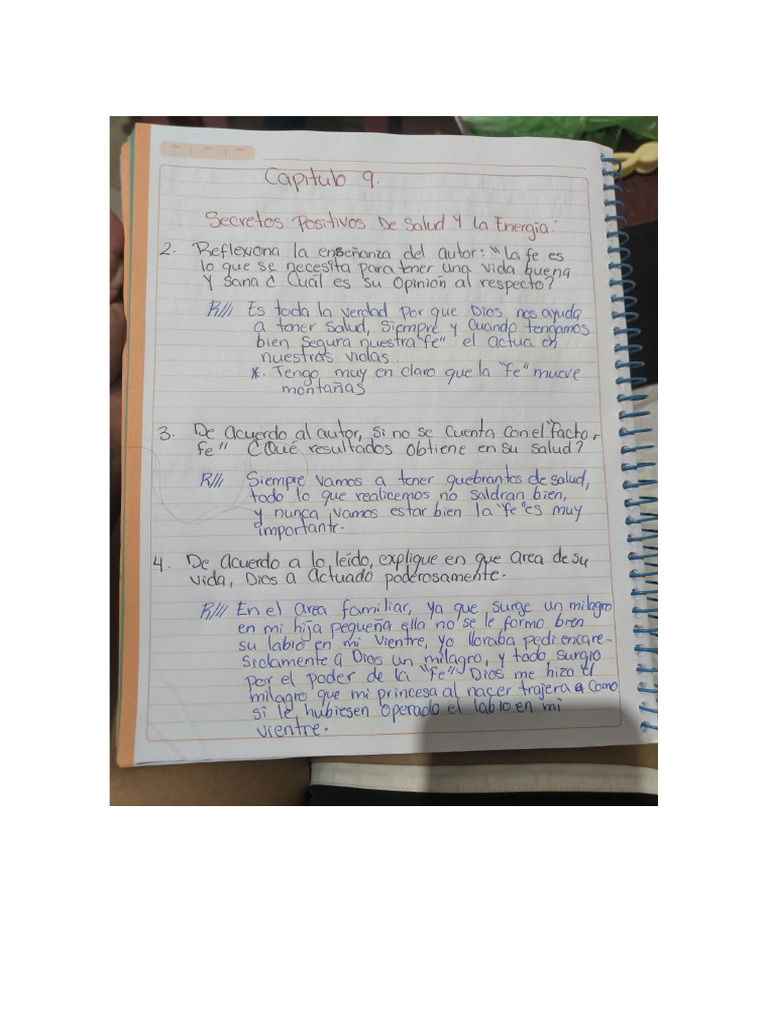 Capitulo 9.
Secretos Positivos De Salud Y La Energía:
2. Reflexiona la enseñanza del autor: "La fe es
lo que se necesita para tener una vida buena
Y sana ¿ Cuál es su Opinión al respecto?
R/// Es toda la verdad por que Dios, nos ayuda
a tener salud, siempre y cuando tengamos
bien segura nuestra "fe" el actua en
nuestras vidas.
*. Tengo muy en claro que la "fe" mueve
montañas
3. De acuerdo al autor, si no se cuenta con el "facto,
fe" ¿Qué resultados obtiene en su salud?
R/// Siempre vamos a tener quebrantos de salud,
todo lo que realicemos no saldran bien,
y nunca vamos estar bien la "fe" es muy
importante.
4. De acuerdo a lo leído, explique en que area de su
vida, Dios a actuado poderosamente.
R/// En el area familiar, ya que surge un milagro
en mi hija pequeña ella no se le formo bien
su labio en mi vientre, yo lloraba pedi encare-
sidamente a Dios un milagro, y todo surgio
por el poder de la "fe" Dios me hizo el
milagro que mi princesa al nacer trajera como
si le hubiesen operado el labio en mi
vientre.